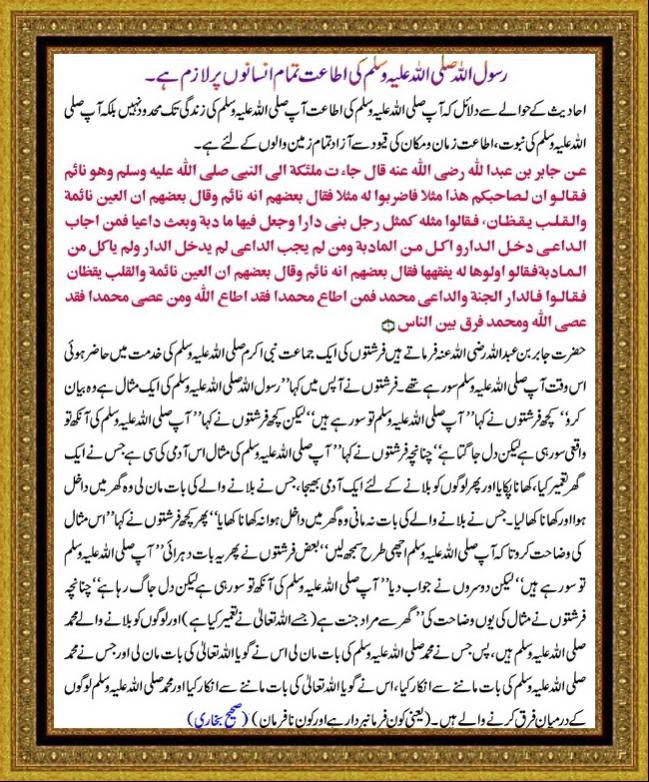 رسول اللہ صلی اللہ علیہ وسلم کی اطاعت تمام انسانوں پر لازم ہے۔
احادیث کے حوالے سے دلائل کہ آپ صلی اللہ علیہ وسلم کی اطاعت آپ صلی اللہ علیہ وسلم کی زندگی تک محدود نہیں بلکہ آپ صلی
اللہ علیہ وسلم کی نبوت، اطاعت زمان و مکان کی قیود سے آزاد تمام زمین والوں کے لئے ہے۔
عن جابر بن عبدا للہ رضی اللہ عنہ قال جاء ت ملئکة الی النبی صلی اللہ علیہ وسلم وھو نائم
فقالو ان لصاحبکم ھذا مثلا فاضربوا لہ مثلا فقال بعضھم انہ نائم وقال بعضھم ان العین نائمة
والقلب یقظان، فقالوا مثلہ کمثل رجل بنی دارا وجعل فیھا ما دبة وبعث داعیا فمن اجاب
الداعی دخل الدارو اکل من المادبة ومن لم یجب الداعی لم یدخل الدار ولم یاکل من
المادبةفقالو اولوھا لہ یفقھھا فقال بعضھم انہ نائم وقال بعضھم ان العین نائمة والقلب یقظان
فقالوا فالدار الجنة والداعی محمد فمن اطاع محمدا فقد اطاع اللہ ومن عصی محمدا فقد
عصی اللہ ومحمد فرق بین الناس
حضرت جابر بن عبداللہ رضی اللہ عنہ فرماتے ہیں فرشتوں کی ایک جماعت نبی اکرم صلی اللہ علیہ وسلم کی خدمت میں حاضر ہوئی
اس وقت آپ صلی اللہ علیہ وسلم سو رہے تھے۔ فرشتوں نے آپس میں کہا’’رسول اللہ صلی اللہ علیہ وسلم کی ایک مثال ہے وہ بیان
کرو‘‘ کچھ فرشتوں نے کہا’’آپ صلی اللہ علیہ وسلم تو سو رہے ہیں‘‘ لیکن کچھ فرشتوں نے کہا’’آپ صلی اللہ علیہ وسلم کی آنکھ تو
واقعی سو رہی ہے لیکن دل جاگتا ہے‘‘ چنانچہ فرشتوں نے کہا’’آپ صلی اللہ علیہ وسلم کی مثال اس آدمی کی سی ہے جس نے ایک
گھر تعمیر کیا، کھانا پکایا اور پھر لوگوں کو بلانے کے لئے ایک آدمی بھیجا، جس نے بلانے والے کی بات مان لی وہ گھر میں داخل
ہوا اور کھانا کھا لیا۔ جس نے بلانے والے کی بات نہ مانی وہ گھر میں داخل ہوا نہ کھانا کھایا‘‘ پھر کچھ فرشتوں نے کہا’’اس مثال
کی وضاحت کرو تاکہ آپ صلی اللہ علیہ وسلم اچھی طرح سمجھ لیں‘‘ بعض فرشتوں نے پھر یہ بات دہرائی’’آپ صلی اللہ علیہ وسلم
تو سو رہے ہیں‘‘ لیکن دوسروں نے جواب دیا’’آپ صلی اللہ علیہ وسلم کی آنکھ تو سو رہی ہے لیکن دل جاگ رہا ہے‘‘ چنانچہ
فرشتوں نے مثال کی یوں وضاحت کی’’گھر سے مراد جنت ہے (جسے اللہ تعالیٰ نے تعمیر کیا ہے) اور لوگوں کو بلانے والے محمد
صلی اللہ علیہ وسلم ہیں، پس جس نے محمد صلی اللہ علیہ وسلم کی بات مان لی اس نے گویا اللہ تعالیٰ کی بات مان لی اور جس نے محمد
صلی اللہ علیہ وسلم کی بات ماننے سے انکار کیا، اس نے گویا اللہ تعالیٰ کی بات ماننے سے انکار کیا اور محمد صلی اللہ علیہ وسلم لوگوں
کے درمیان فرق کرنے والے ہیں۔ (یعنی کون فرمانبردار ہے اور کون نافرمان) (صحیح بخاری)